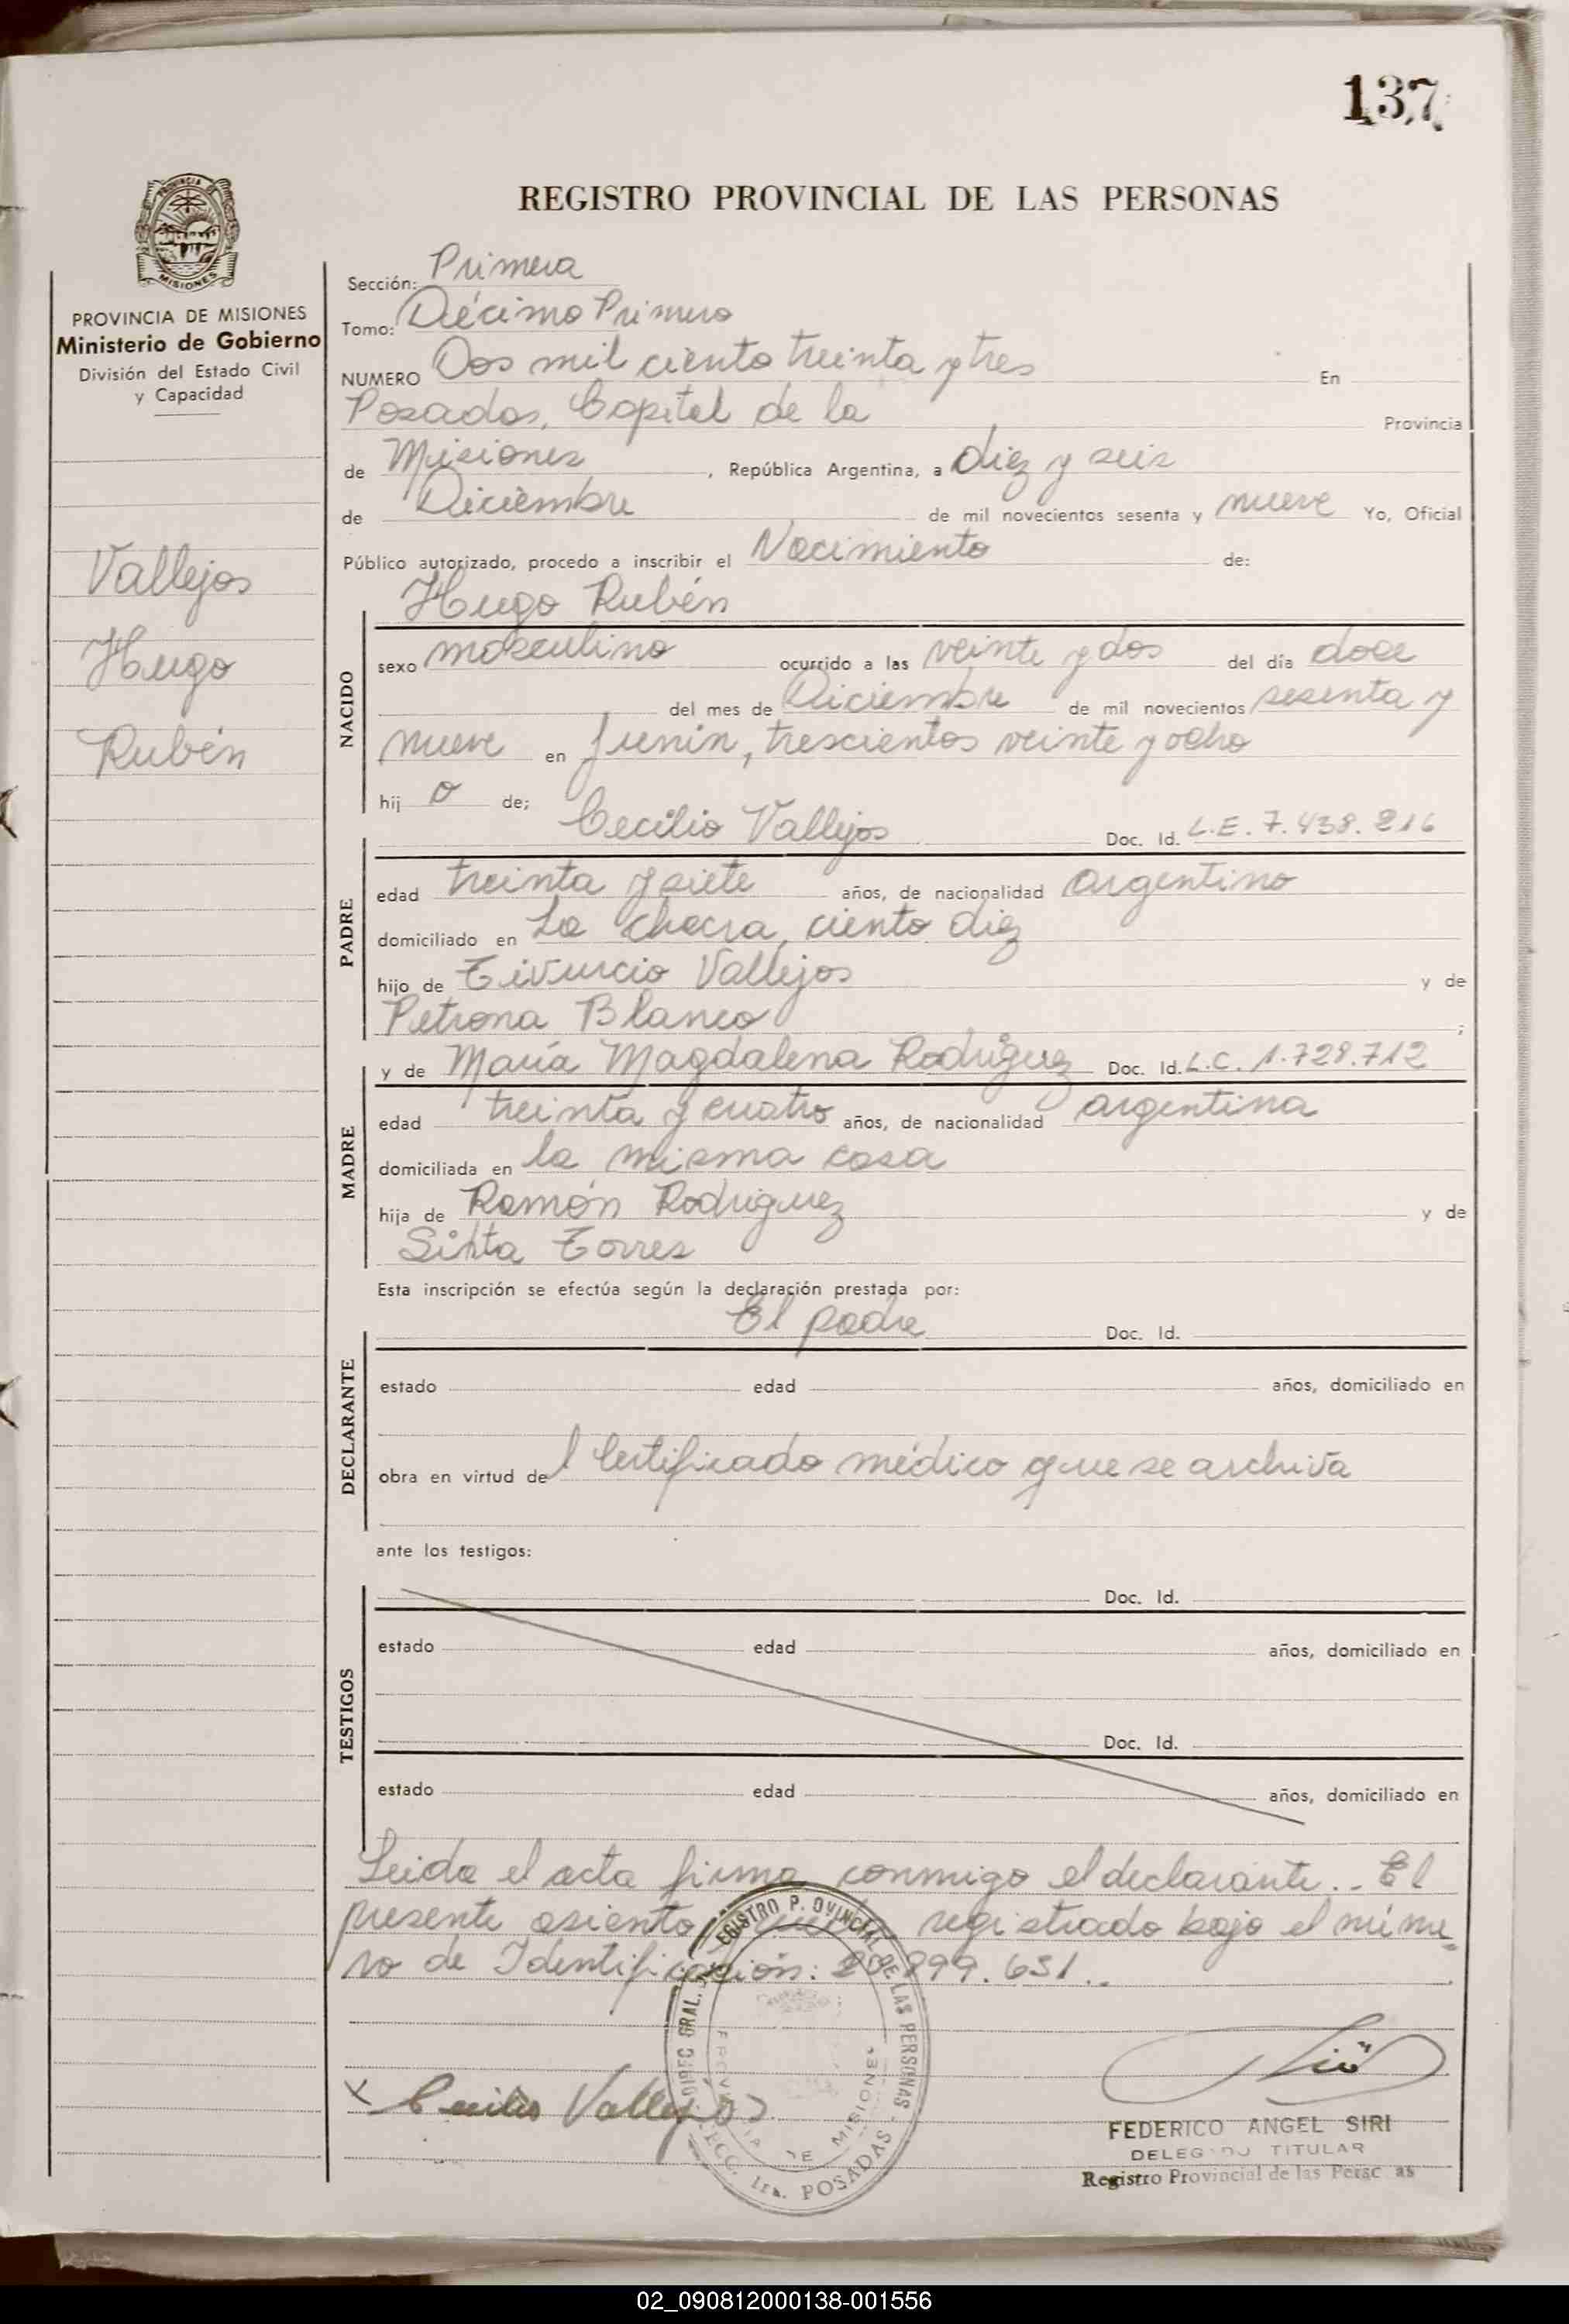 137
REGISTRO PROVINCIAL DE LAS PERSONAS
PROVINCIA DE MISIONES
Ministerio de Gobierno
División del Estado Civil
y Capacidad
Vallejos
Hugo
Rubén
Sección: Primera
Tomo: Décimo Primero
NUMERO Dos mil ciento treinta y tres En
Posadas, Capital de la Provincia
de Misiones, República Argentina, a diez y seis
de Diciembre de mil novecientos sesenta y nueve Yo, Oficial
Público autorizado, procedo a inscribir el Nacimiento de:
Hugo Rubén
NACIDO
sexo masculino ocurrido a las veinte y dos del día doce
del mes de Diciembre de mil novecientos sesenta y
nueve en Junín, trescientos veinte y ocho
hij o de;
Cecilio Vallejos Doc. Id. L.E. 7.438.216
PADRE
edad treinta y siete años, de nacionalidad argentino
domiciliado en La chacra, ciento diez
hijo de Tivurcio Vallejos y de
Petrona Blanco ;
y de María Magdalena Rodríguez Doc. Id. L.C. 1.728.712
MADRE
edad treinta y cuatro años, de nacionalidad argentina
domiciliada en la misma casa
hija de Ramón Rodríguez y de
Sinta Torres
Esta inscripción se efectúa según la declaración prestada por:
El padre Doc. Id.
DECLARANTE
estado edad años, domiciliado en
obra en virtud del Certificado médico que se archiva
ante los testigos:
TESTIGOS
Doc. Id.
estado edad años, domiciliado en
Doc. Id.
estado edad años, domiciliado en
Leida el acta firma conmigo el declarante.. El
presente asiento registrado bajo el núme
ro de Identificación: 899.631..
DIREC GRAL. REGISTRO PROVINCIAL DE LAS PERSONAS
PROVINCIA DE MISIONES
SECC. 1ra. POSADAS
x Cecilio Vallejos
FEDERICO ANGEL SIRI
DELEGADO TITULAR
Registro Provincial de las Personas
02_090812000138-001556